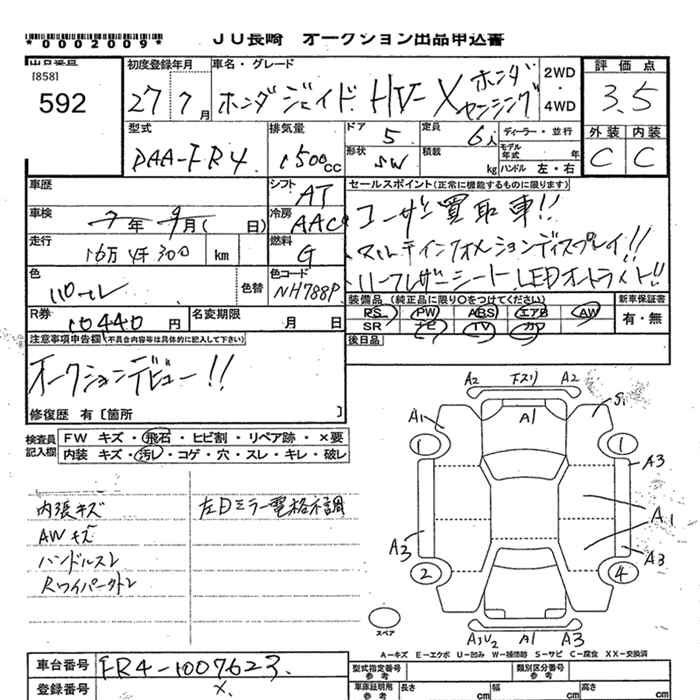 *0002009*
JU長崎 オークション出品申込書
出品番号
[858]
592
初度登録年月
27 7 月
車名・グレード
ホンダジェイド HV-X ホンダセンシング
2WD
・
4WD
評価点
3.5
型式
DAA-FR4
排気量
1500 CC
ドア
5
定員
6人
形状
SW
積載
kg
ディーラー・並行
モデル年式 年
ハンドル 左・右
外装 内装
C C
車歴
シフト
AT
セールスポイント(正常に機能するものに限ります)
車検
7年 9月( 日)
冷房
AAC
ユーザー買取車!!
走行
16万4千300 km
燃料
G
マルチインフォメーションディスプレイ!!
ハーフレザーシート LEDオートライト!!
色
パール
色替
色コード
NH788P
装備品 (純正品に限り○をつけてください)
PS PW ABS エアB AW
SR ナビ TV カワ
新車保証書
有・無
R券
10440 円
名変期限
月 日
後日品
注意事項申告欄(不具合内容等は具体的に記入して下さい)
オークションデビュー!!
修復歴 有〔箇所 〕
検査員
記入欄
FW キズ・飛石・ヒビ割・リペア跡・×要
内装 キズ・汚レ・コゲ・穴・スレ・キレ・破レ
内張キズ
左Dミラー電格不調
AWキズ
ハンドルスレ
A2 下スリ A2
A1 A1 S1
1 1
A3
A1
A3 A3
2 4
スペア
A3U2 A1 A3
A-キズ E-エクボ U-凹み W-補修跡 S-サビ C-腐食 XX-交換済
車台番号
FR4-1007623
登録番号
×
型式指定番号
参考
類別区分番号
参考
車庫証明用
参考
長さ cm
幅 cm
高さ cm